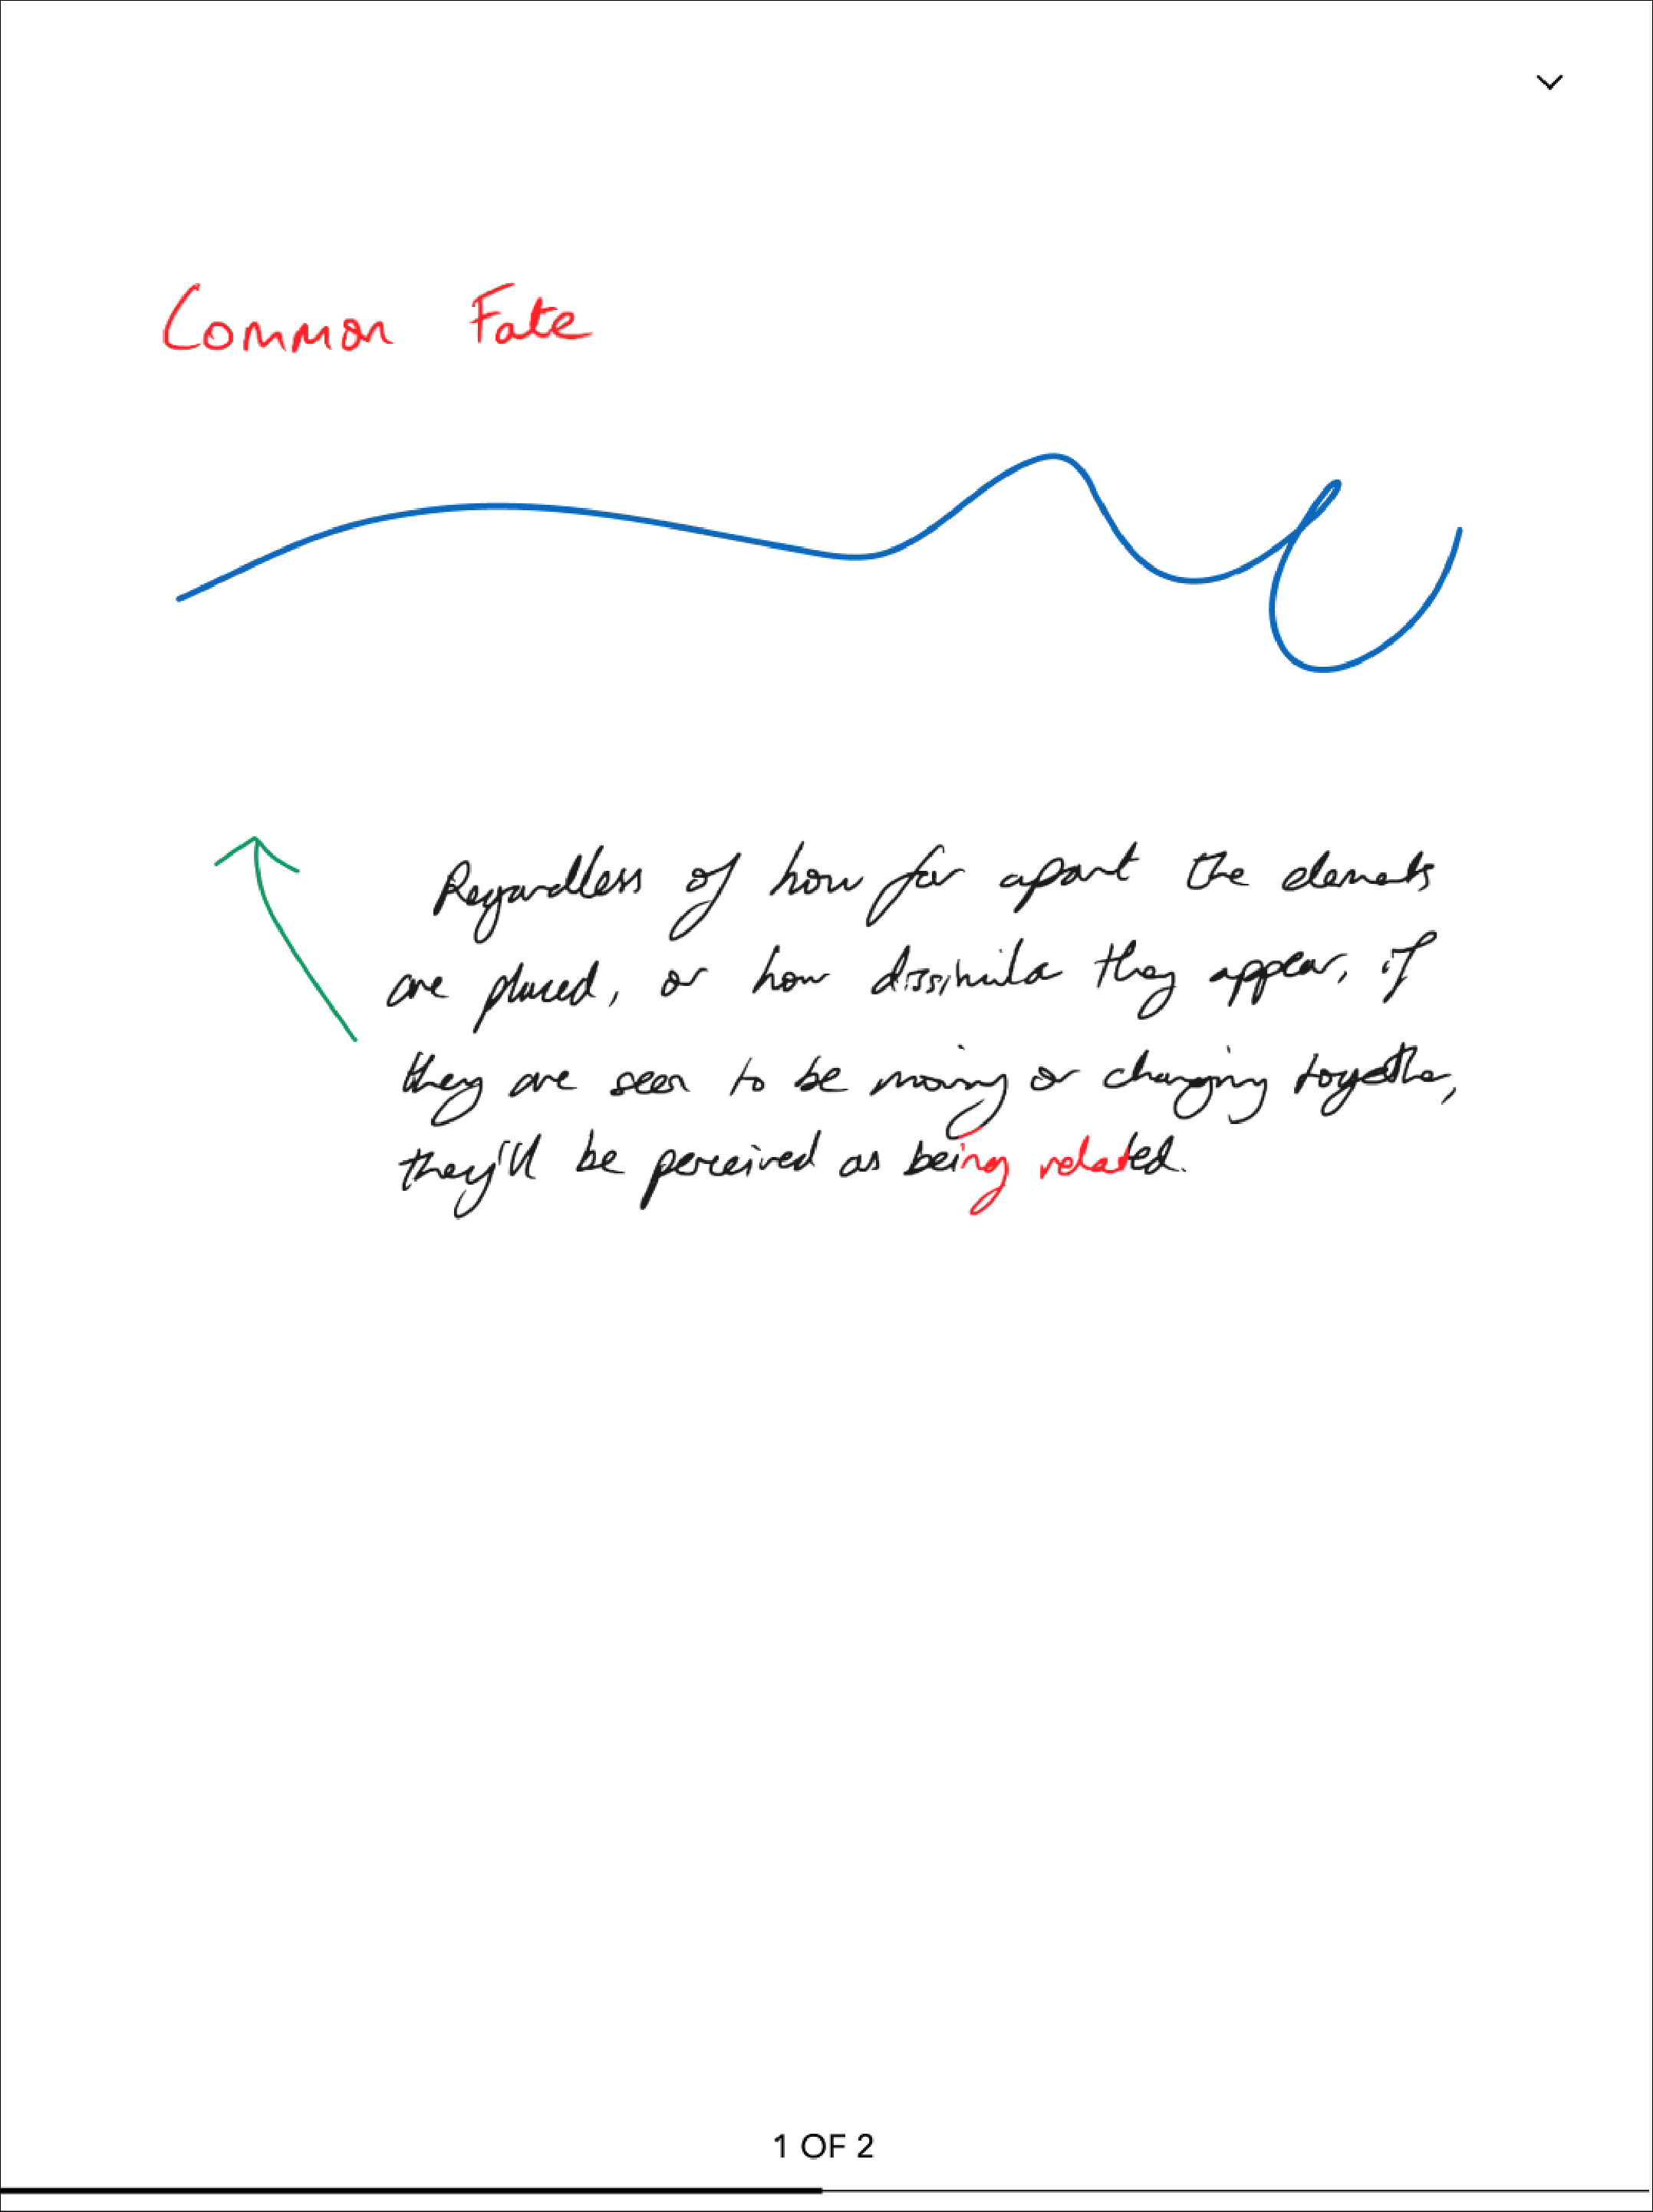 Common Fate
Regardless of how far apart the elements
are placed, or how dissimilar they appear, if
they are seen to be moving or changing together,
they'll be perceived as being related.
1 OF 2